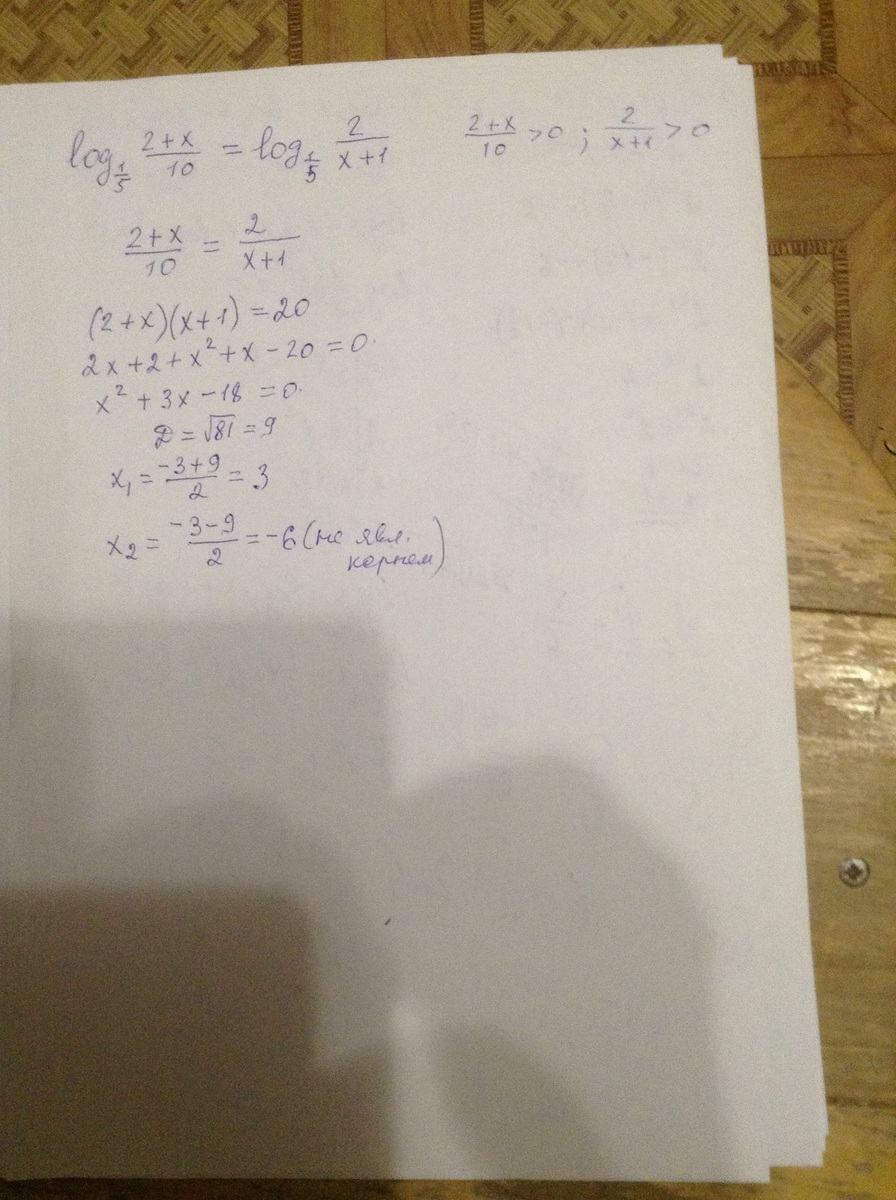 log_{1/5} (2+x)/10 = log_{1/5} 2/(x+1)     (2+x)/10 > 0 ; 2/(x+1) > 0
(2+x)/10 = 2/(x+1)
(2+x)(x+1) = 20
2x+2+x²+x-20 = 0.
x² + 3x - 18 = 0.
D = √81 = 9
x₁ = (-3+9)/2 = 3
x₂ = (-3-9)/2 = -6 (не явл.
корнем)